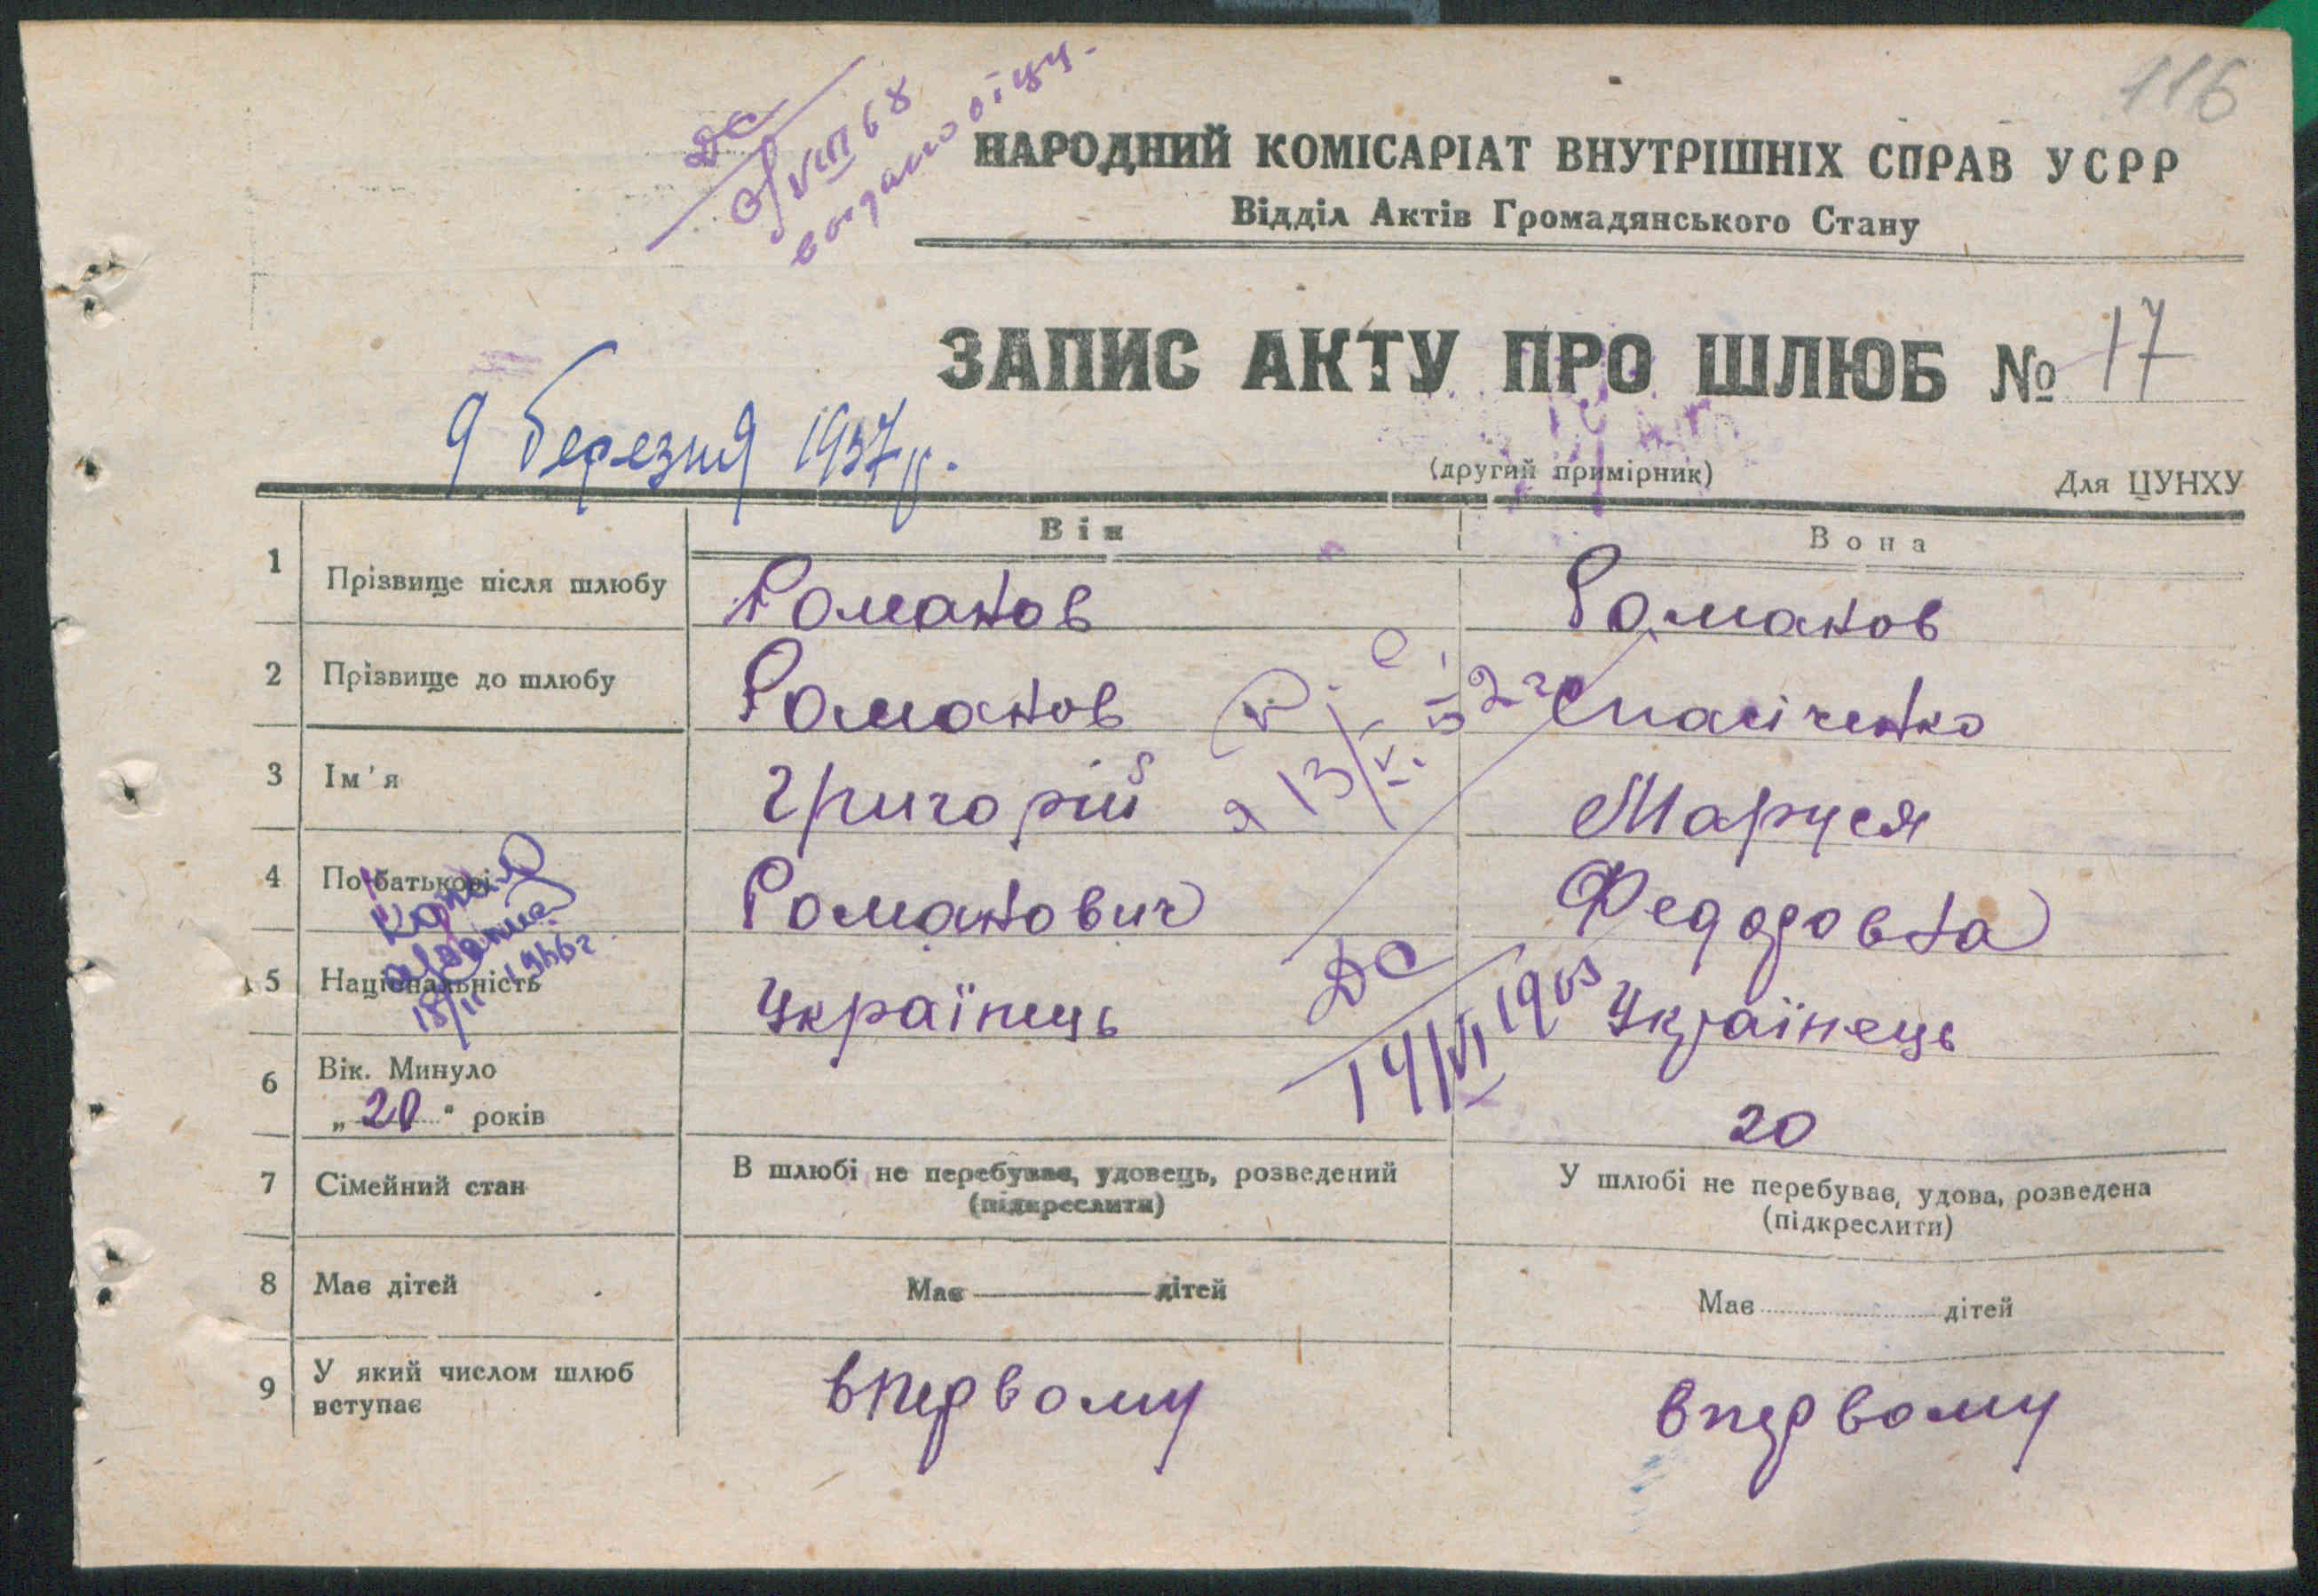 116
ДС
VIII 68
НАРОДНИЙ КОМІСАРІАТ ВНУТРІШНІХ СПРАВ УСРР
Відділ Актів Громадянського Стану
ЗАПИС АКТУ ПРО ШЛЮБ № 17
9 березня 1937 р.
(другий примірник)
Для ЦУНХУ
Він Вона
1 Прізвище після шлюбу Романов Романов
2 Прізвище до шлюбу Романов Спасіченко
3 Ім'я Григорій Маруся
4 По-батькові Романович Федоровна
5 Національність Українець Українець
Копія
18/II 1946 г.
13/V. 52 г
ДС
14/VI 1963
6 Вік. Минуло
„20" років 20
7 Сімейний стан В шлюбі не перебував, удовець, розведений У шлюбі не перебуває, удова, розведена
(підкреслити) (підкреслити)
8 Має дітей Має дітей Має дітей
9 У який числом шлюб
вступає впервому впервому